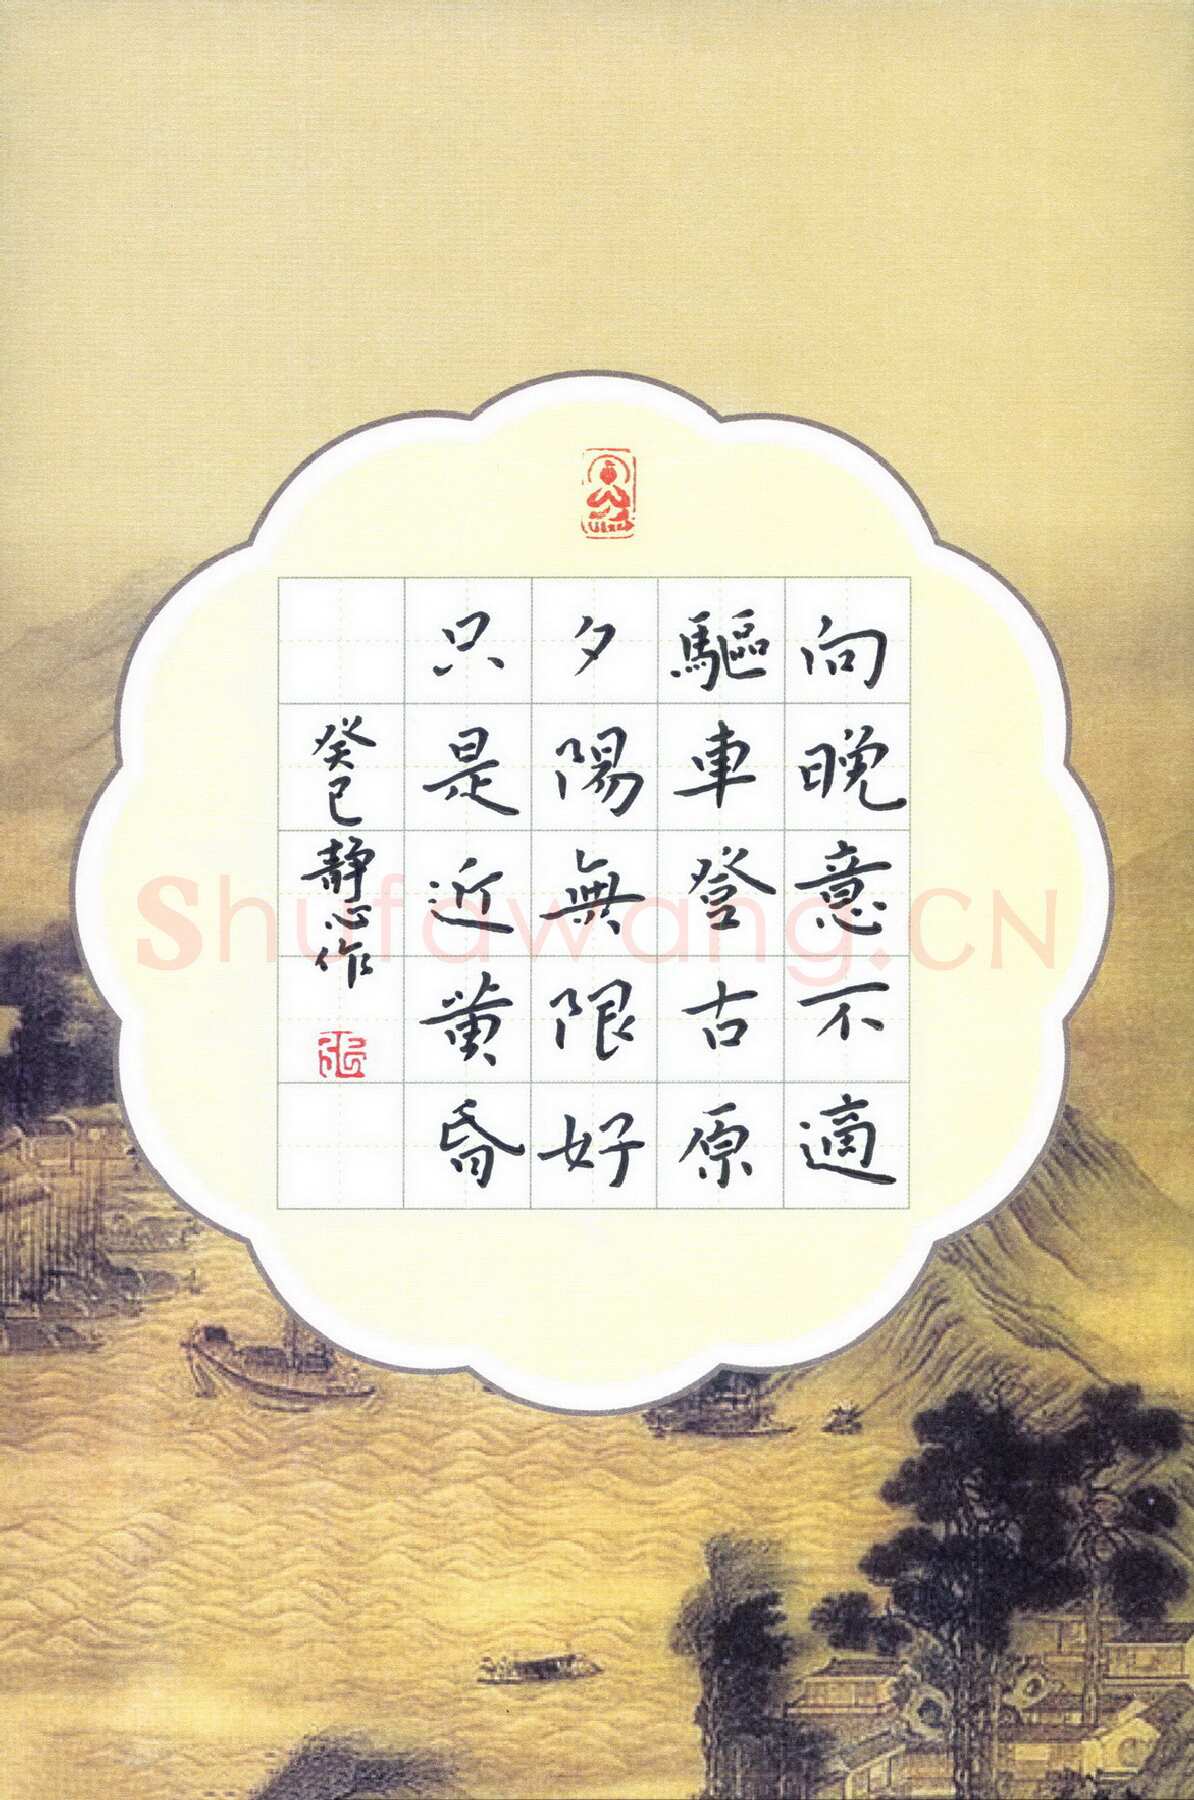 向晚意不適
驅車登古原
夕陽無限好
只是近黄昏
癸巳静心作
Shufawang.CN